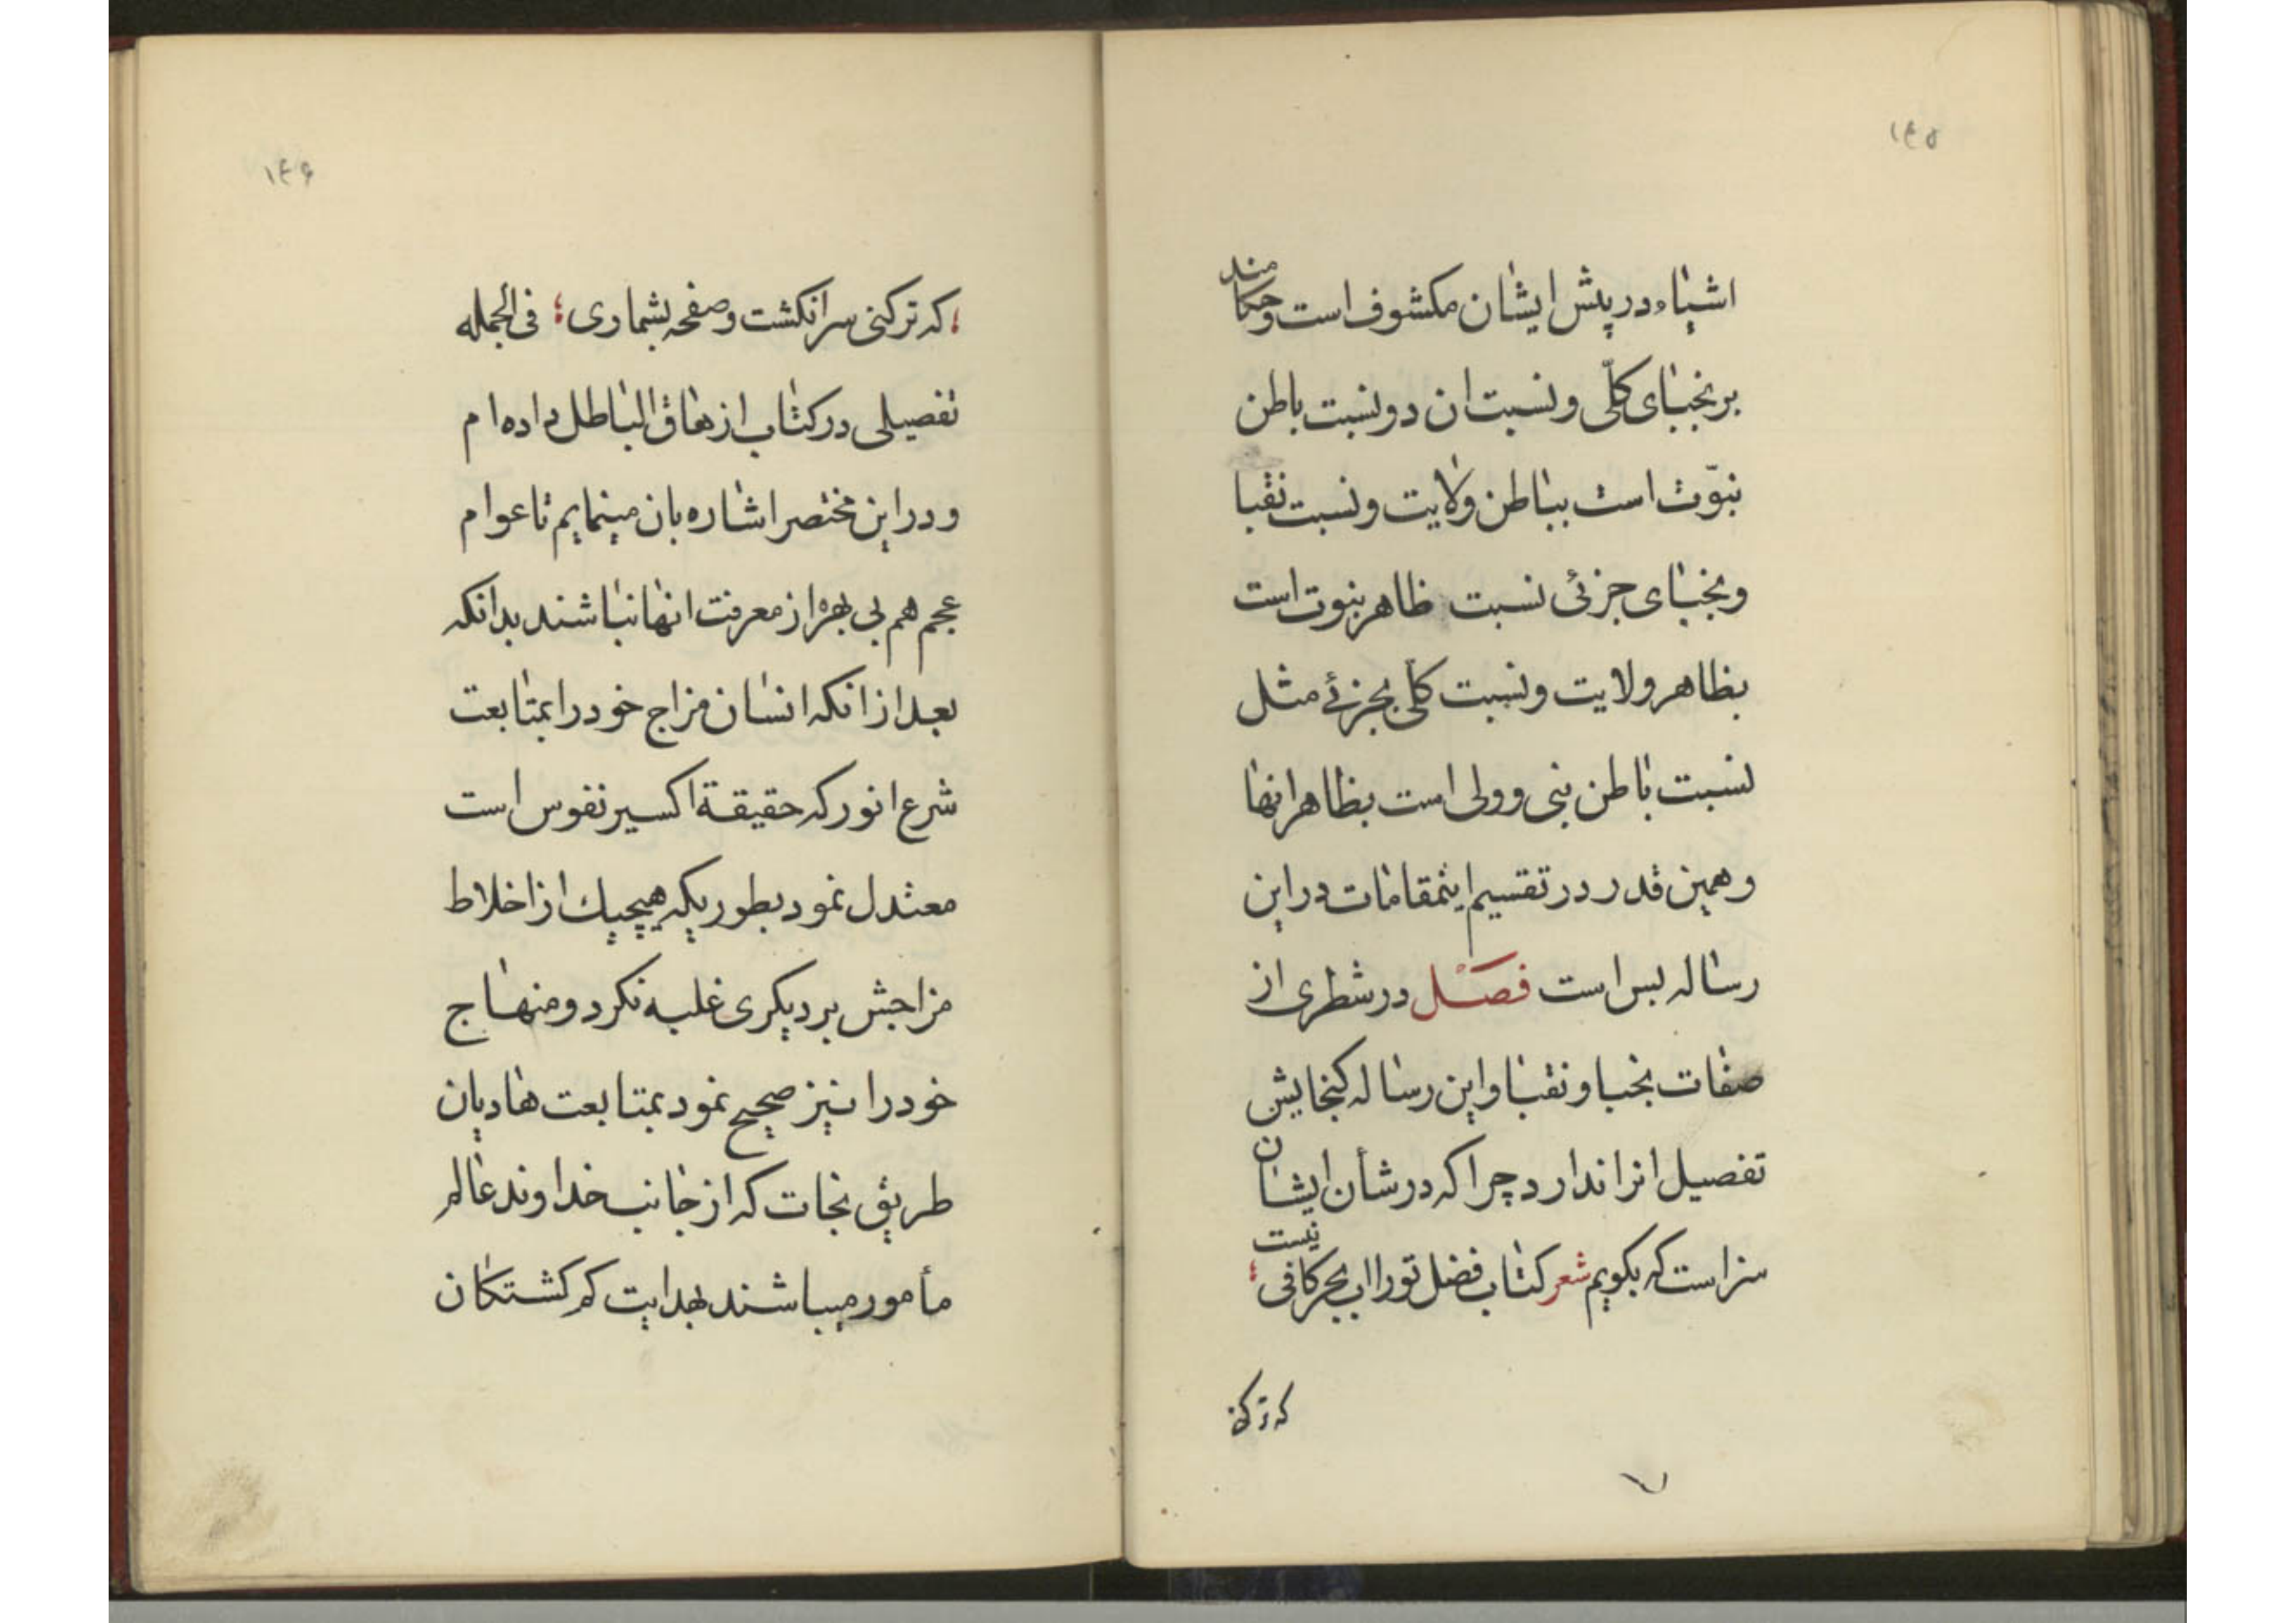 ۱۴۵
اشیاء در پیش ایشان مکشوف است و حکامند
بر نجبای کلّی و نسبت ان دو نسبت باطن
نبوّت است بباطن ولایت و نسبت نقبا
و نجبای جزئی نسبت ظاهر نبوت است
بظاهر ولایت و نسبت کلی بجزئی مثل
نسبت باطن نبی و ولی است بظاهر انها
و همین قدر در تقسیم اینمقامات در این
رساله بس است فصل در شطری از
صفات نجبا و نقبا و این رساله کنجایش
تفصیل انرا ندارد چرا که در شأن ایشان
سزاست که بکویم شعر کتاب فضل تورا اب بحر کافی نیست ؛
که تر کنی
۱۴۶
؛ که تر کنی سر انکشت و صفحه بشماری ؛ فی الجمله
تفصیلی در کتاب ازهاق الباطل داده ام
و در این مختصر اشاره بان مینمایم تا عوام
عجم هم بی بهره از معرفت انها نباشند بدانکه
بعد از انکه انسان مزاج خود را بمتابعت
شرع انور که حقیقة اکسیر نفوس است
معتدل نمود بطوریکه هیچیك از اخلاط
مزاجش بر دیکری غلبه نکرد و منهاج
خود را نیز صحیح نمود بمتابعت هادیان
طریق نجات که از جانب خداوند عالم
مأمور میباشند بهدایت کم کشتکان